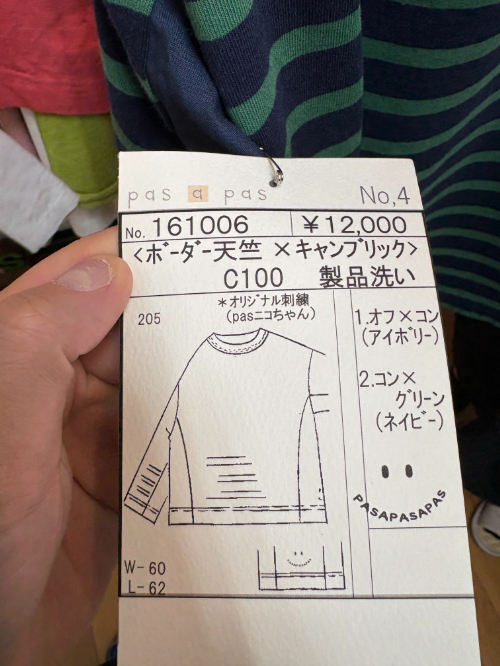 pas a pas No,4
No. 161006 ¥12,000
<ボーダー天竺×キャンブリック>
C100 製品洗い
205
*オリジナル刺繍
(pasニコちゃん)
1.オフ×コン
(アイボリー)
2.コン×
グリーン
(ネイビー)
PASAPASAPAS
W-60
L-62